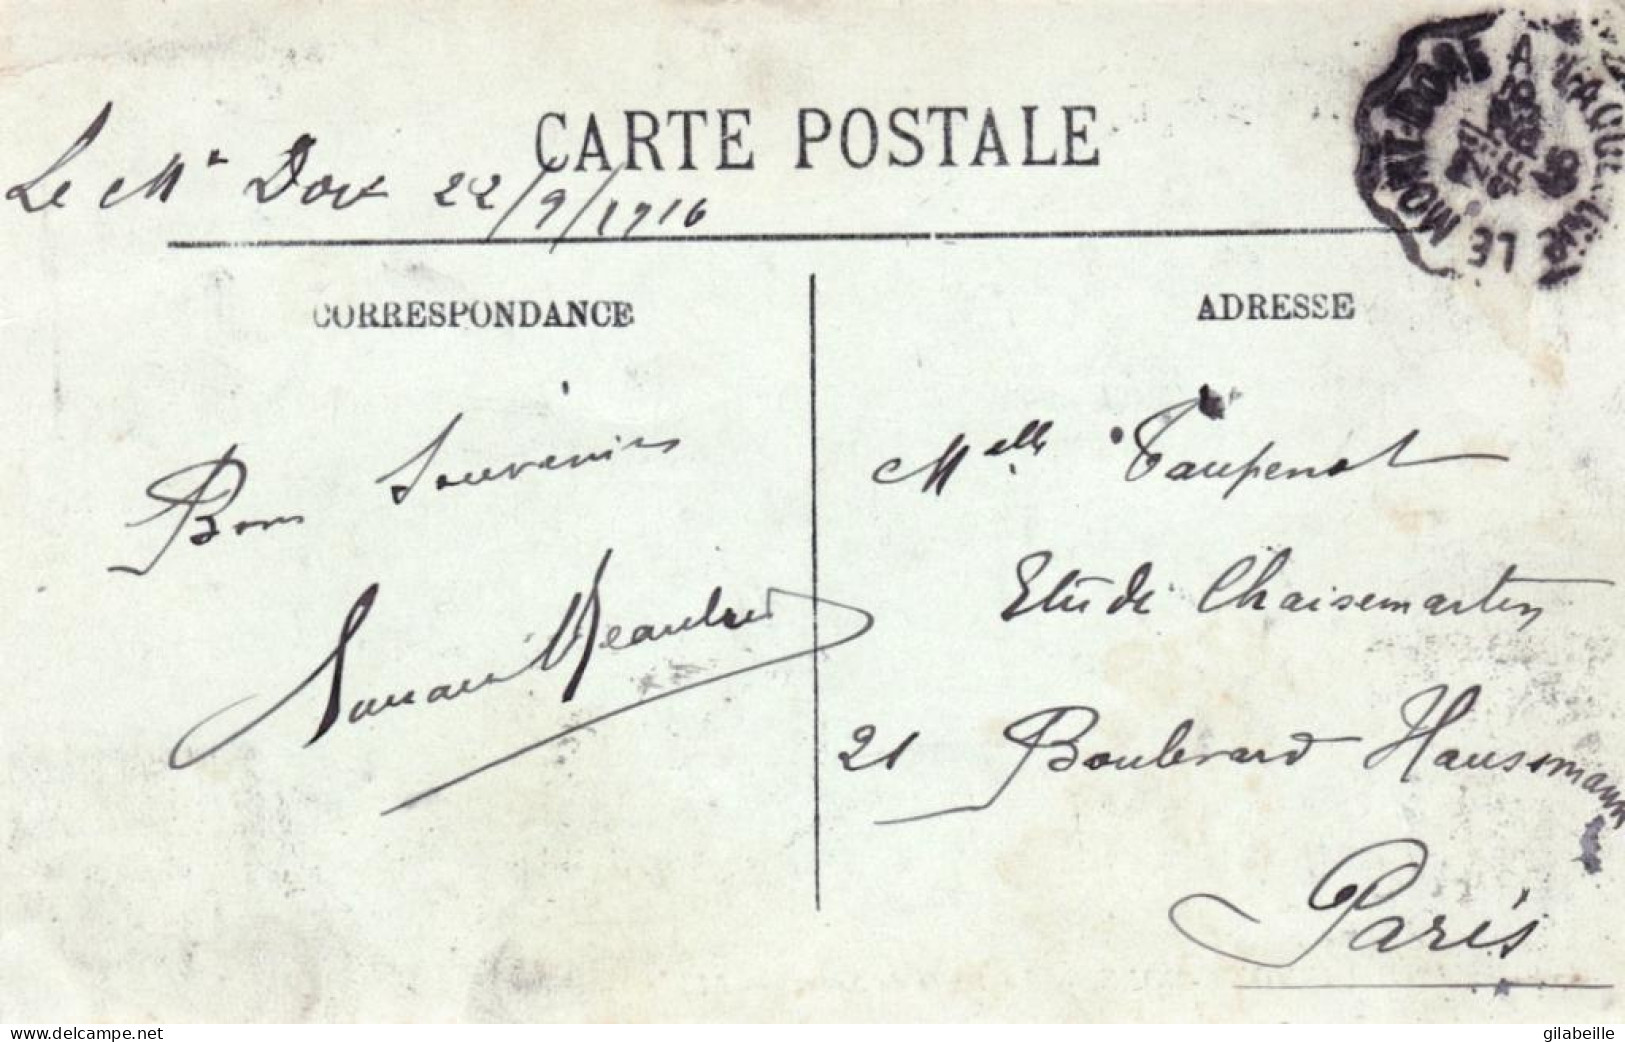 CARTE POSTALE
Le Mt Dore 22/9/1916
LE MONT-DORE A
CORRESPONDANCE
ADRESSE
Bons Souvenirs
Melle Taupenot
Etude Chaisemartin
21 Boulevard Haussmann
Paris
www.delcampe.net
gilabeille